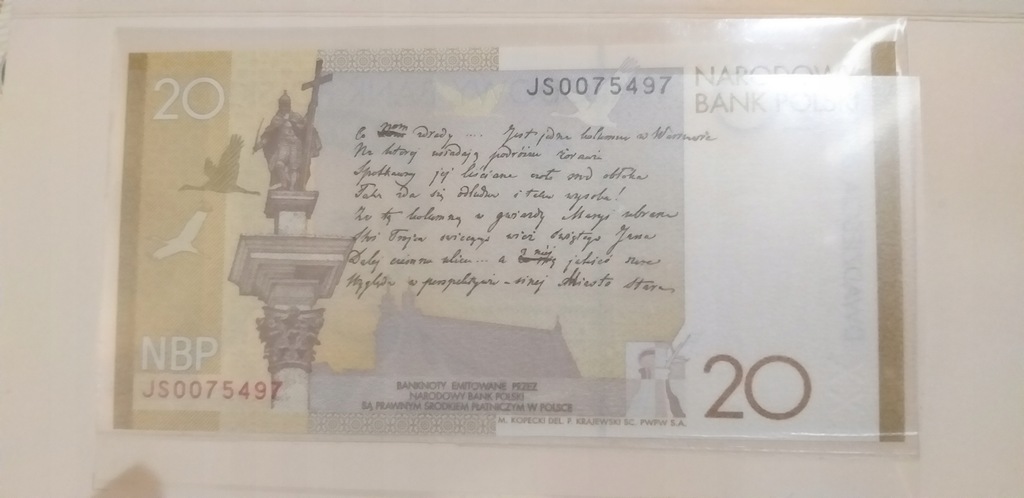 20
JS0075497
NARODOWY
BANK POLSKI
Co nam zdrady .... Jest jedna kolumna w Warszawie
Na ktorej usiadają podróżne żorawie
Spotkawszy jej liściane czoło środ obłoka
Taka zda się odludna i taka wysoka!
Za tą kolumną w gwiazdy ubrana
Stoi Trojca swiecących wież świętego Jana
Dalej ciemna ulica... a z niej jakieś szare
Wygląda w perspektywie - sinej Miasto Stare
NBP
JS0075497
BANKNOTY EMITOWANE PRZEZ
NARODOWY BANK POLSKI
SĄ PRAWNYM ŚRODKIEM PŁATNICZYM W POLSCE
M. KOPECKI DEL. P. KRAJEWSKI SC. PWPW S.A.
20